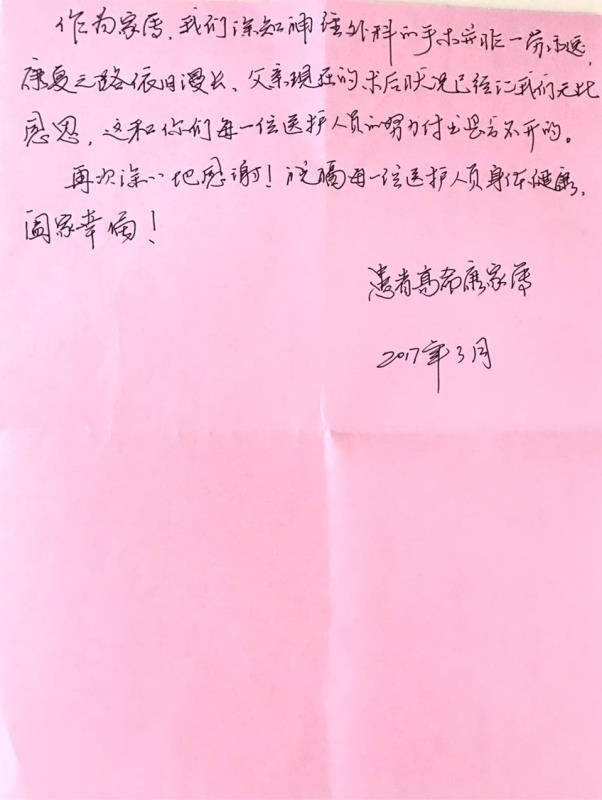 作为家属，我们深知神经外科的手术并非一劳永逸，
康复之路依旧漫长、父亲现在的术后状况已经让我们无比
感恩，这和你们每一位医护人员的努力付出是分不开的。
再次深深地感谢！祝福每一位医护人员身体健康，
阖家幸福！
患者高希康家属
2017年3月